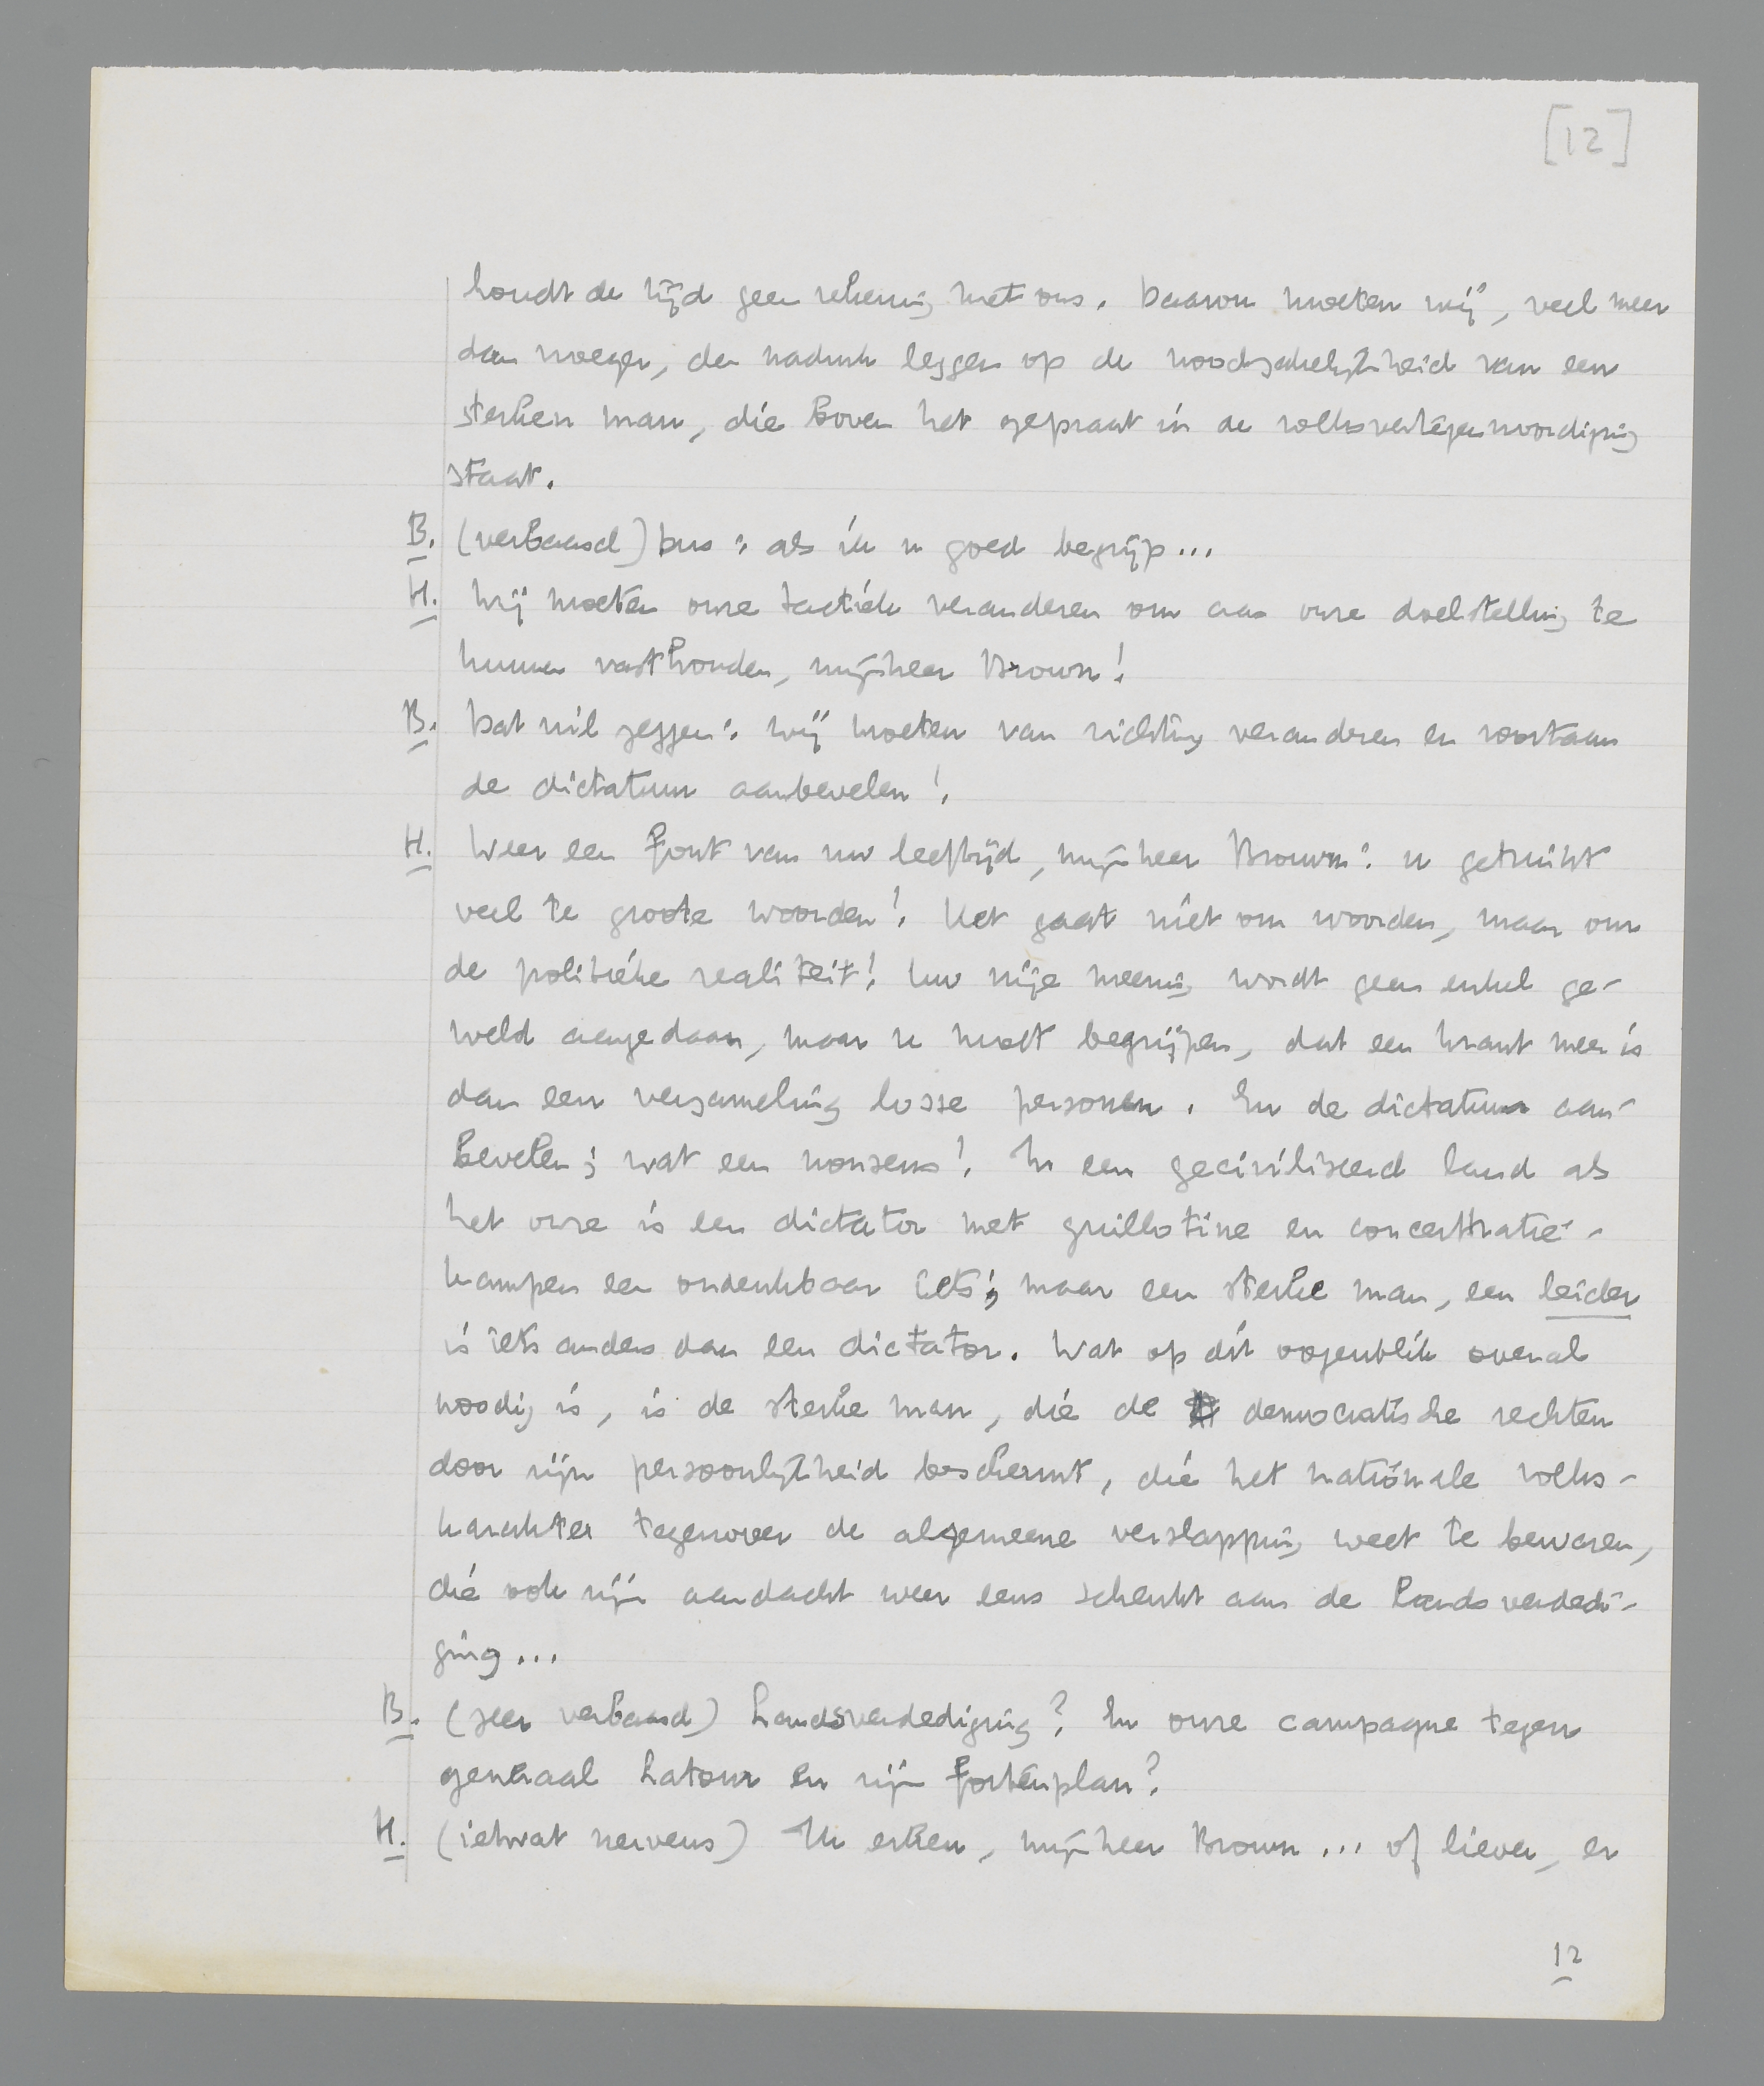 [12]
houdt de tijd geen rekening met ons. Daarom moeten wij, veel meer
dan vroeger, den nadruk leggen op de noodzakelijkheid van een
sterken man, die boven het gepraat in de volksvertegenwoordiging
staat.
B. (verbaasd) Dus: als ik u goed begrijp...
H. Wij moeten onze tactiek veranderen om aan onze doelstelling te
kunnen vasthouden, mijnheer Brown!
B. Dat wil zeggen: wij moeten van richting veranderen en voortaan
de dictatuur aanbevelen!
H. Weer een fout van uw leeftijd, mijnheer Brown: u gebruikt
veel te groote woorden! Het gaat niet om woorden, maar om
de politieke realiteit! Uw vrije meening wordt geen enkel ge-
weld aangedaan, maar u moet begrijpen, dat een krant meer is
dan een verzameling losse personen. En de dictatuur aan-
bevelen; wat een nonsens! In een geciviliseerd land als
het onze is een dictator met guillotine en concentratie-
kampen een ondenkbaar iets; maar een sterke man, een leider
is iets anders dan een dictator. Wat op dit oogenblik overal
noodig is, is de sterke man, die de democratische rechten
door zijn persoonlijkheid beschermt, die het nationale volks-
karakter tegenover de algemeene verslapping weet te bewaren,
die ook zijn aandacht weer eens schenkt aan de landsverdedi-
ging...
B. (zeer verbaasd) Landsverdediging? En onze campagne tegen
generaal Latour en zijn fortenplan?
H. (ietwat nerveus) Ik erken, mijnheer Brown... of liever, er
12